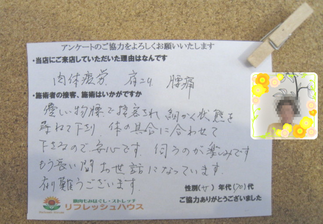 アンケートのご協力をよろしくお願いいたします
・当店にご来店していただいた理由はなんです
肉体疲労 肩こり 腰痛
・施術者の接客、施術はいかがですか
優しい物腰で接客され、細かく状態を
尋ねて下さり、体の具合に合わせて
下さるので安心です 伺うのが楽しみです
もう長い間お世話になっています
有難うございます
性別(女)年代( )代
筋肉もみほぐし・ストレッチ
リフレッシュハウス
ご協力ありがとうございました